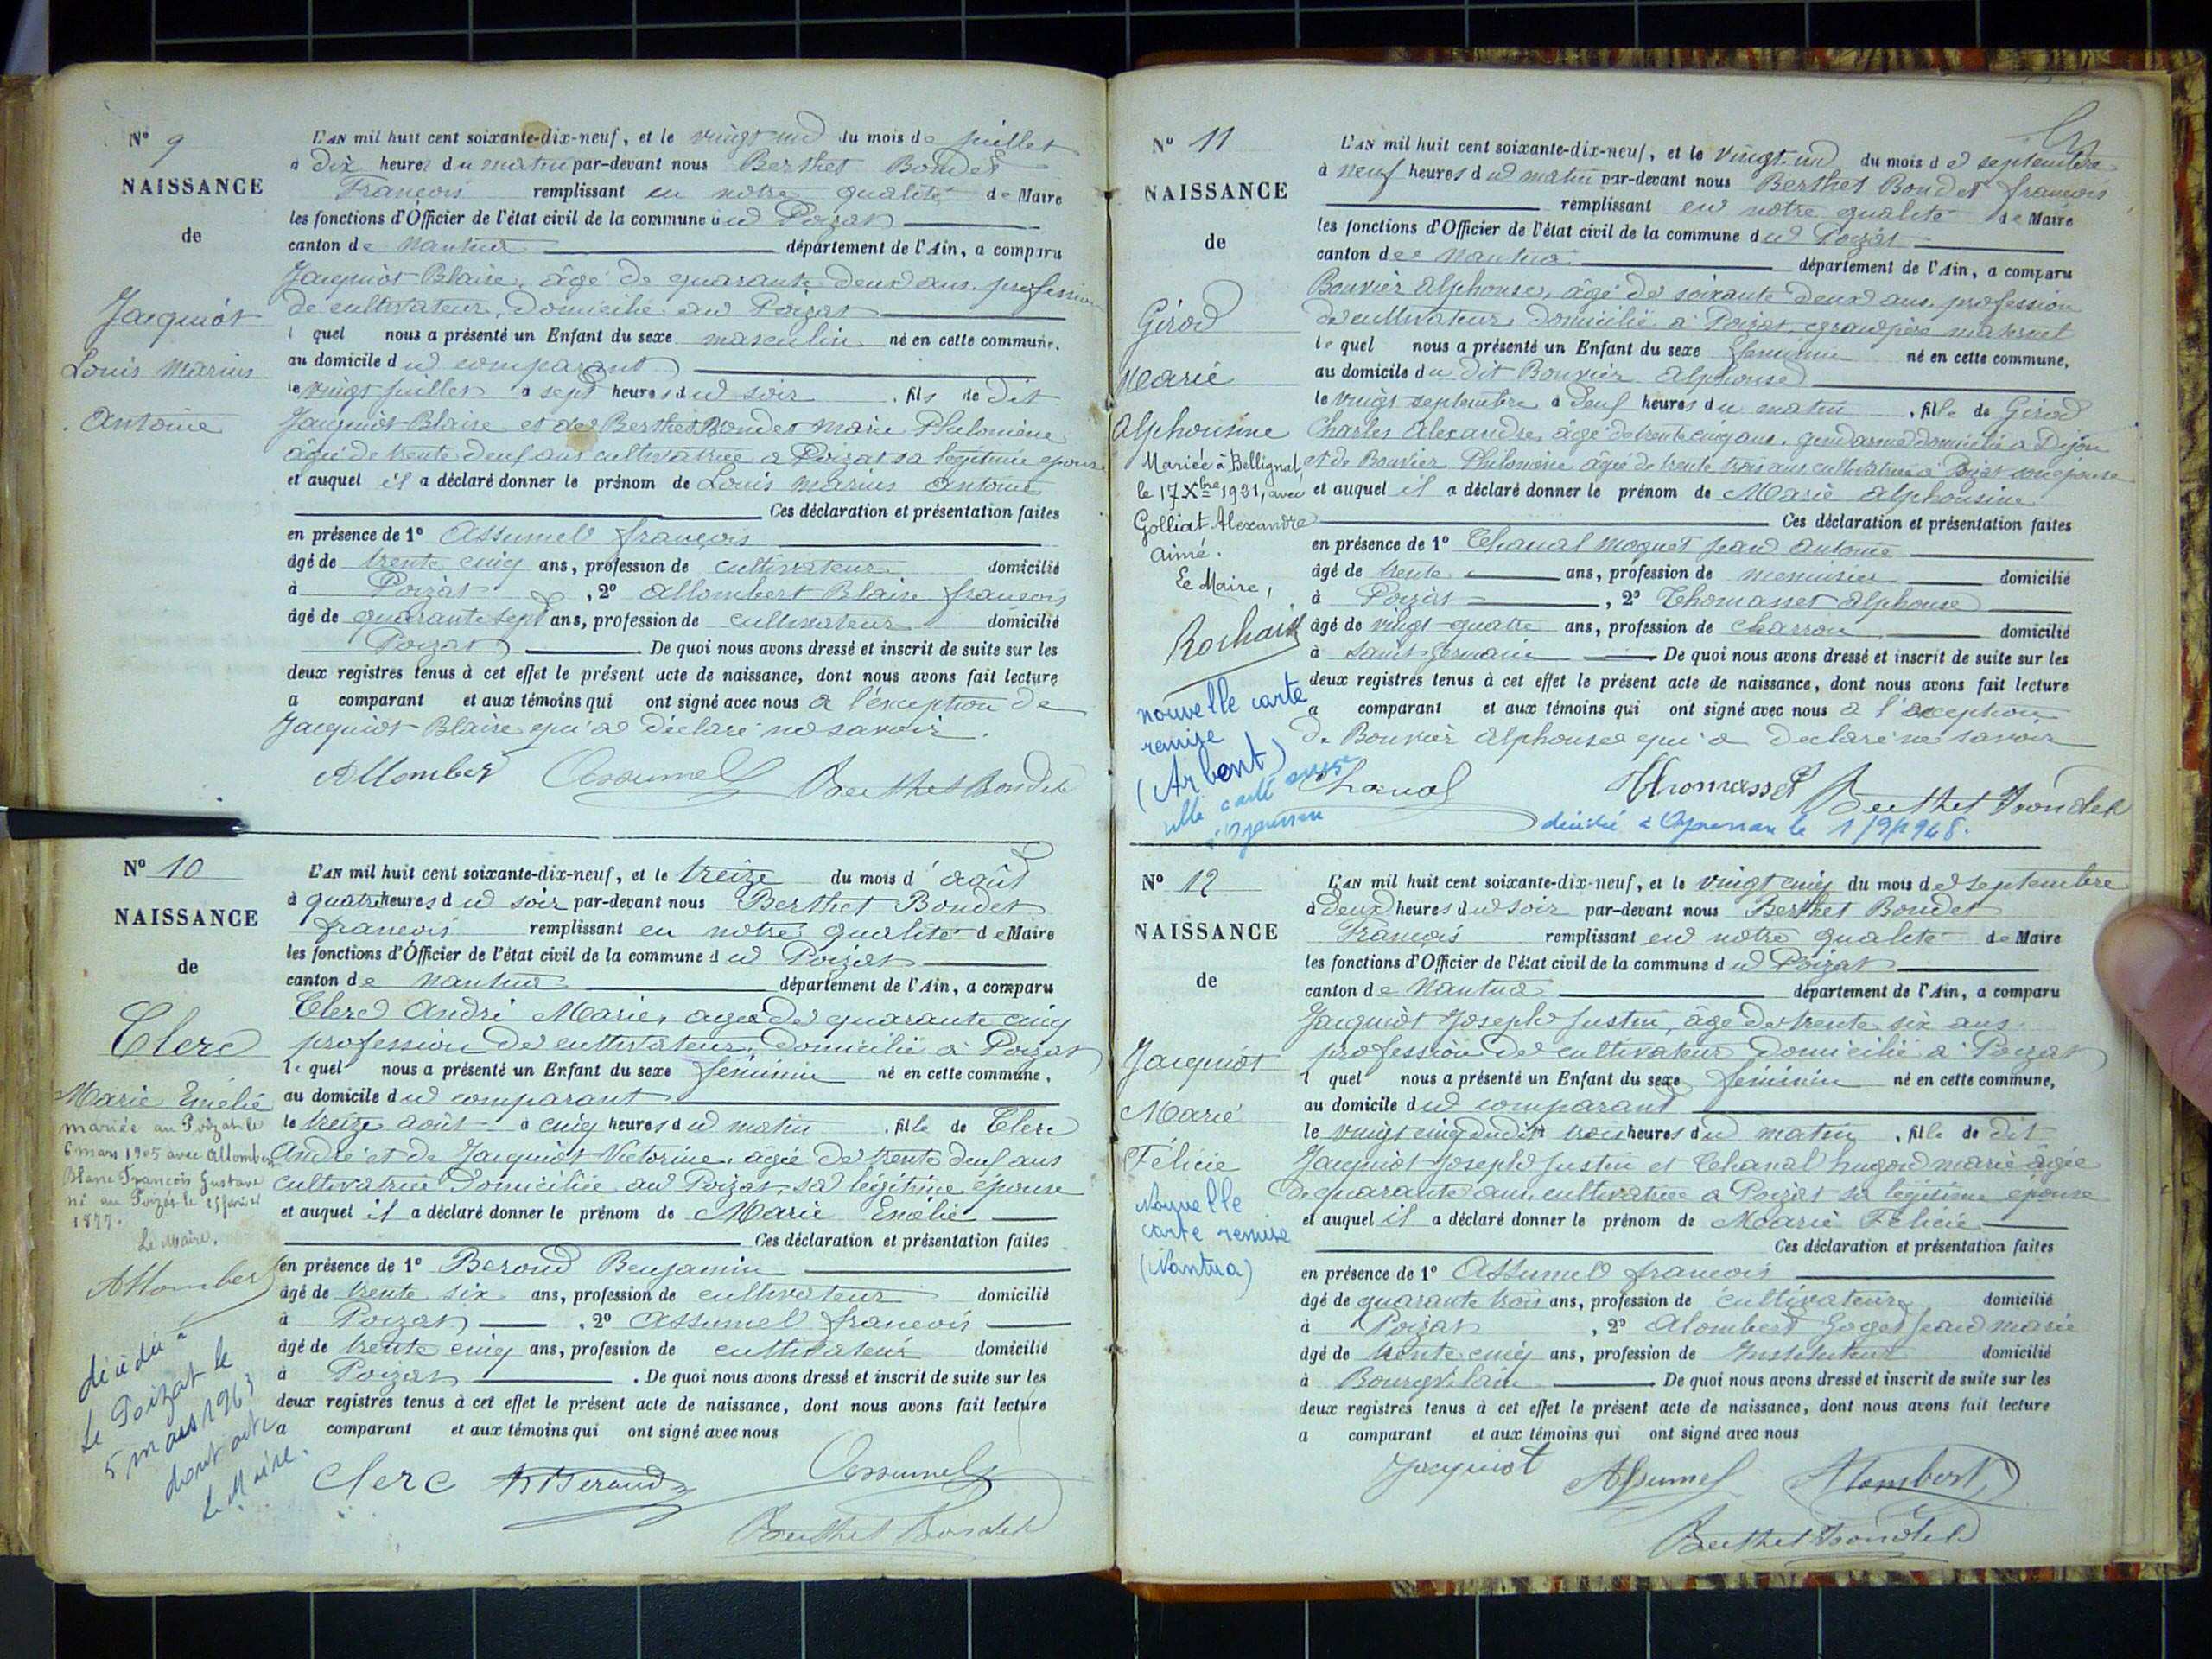 N° 9
NAISSANCE
de
Jacquiot
Louis Marius
Antoine
L'AN mil huit cent soixante-dix-neuf, et le vingt un du mois de juillet
à dix heures du matin par-devant nous Berthet Bondet
François remplissant en notre qualité de Maire
les fonctions d'Officier de l'état civil de la commune du Poizat
canton de Nantua département de l'Ain, a comparu
Jacquiot Blaise, âgé de quarante deux ans, profession
de cultivateur, domicilié au Poizat
l quel nous a présenté un Enfant du sexe masculin né en cette commune.
au domicile du comparant
le vingt juillet à sept heures du soir , fils de dit
Jacquiot Blaise et de Berthet Bondet Marie Philomène
âgée de trente neuf ans cultivatrice a Poizat sa légitime épouse
et auquel il a déclaré donner le prénom de Louis Marius Antoine
Ces déclaration et présentation faites
en présence de 1° Assumel françois
âgé de trente cinq ans, profession de cultivateur domicilié
à Poizat , 2° Allombert Blaise françois
âgé de quarante sept ans, profession de cultivateur domicilié
Poizat . De quoi nous avons dressé et inscrit de suite sur les
deux registres tenus à cet effet le présent acte de naissance, dont nous avons fait lecture
a comparant et aux témoins qui ont signé avec nous a l'exception de
Jacquiot Blaise qui a déclaré ne savoir.
Allombert Assumel Berthet Bondet
N° 10
NAISSANCE
de
Clerc
Marie Emélie
mariée au Poizat le
6 mars 1905 avec Allombert
Blanc François Gustave
né au Poizat le
1877.
Le Maire.
Allombert
décédée à
Le Poizat le
5 mars 1963
dont acte
Le Maire.
L'AN mil huit cent soixante-dix-neuf, et le treize du mois d' août
à quatre heures du soir par-devant nous Berthet Bondet
françois remplissant en notre qualité de Maire
les fonctions d'Officier de l'état civil de la commune du Poizat
canton de Nantua département de l'Ain, a comparu
Clerc André Marie, agé de quarante cinq
profession de cultivateur, domicilié à Poizat
le quel nous a présenté un Enfant du sexe féminin né en cette commune,
au domicile du comparant
le treize août à cinq heures du matin , fille de Clerc
André et de Jacquiot Victorine, agée de trente neuf ans
cultivatrice domiciliée au Poizat, sa légitime épouse
et auquel il a déclaré donner le prénom de Marie Emélie
Ces déclaration et présentation faites
en présence de 1° Beroud Benjamin
âgé de trente six ans, profession de cultivateur domicilié
à Poizat , 2° Assumel françois
âgé de trente cinq ans, profession de cultivateur domicilié
à Poizat . De quoi nous avons dressé et inscrit de suite sur les
deux registres tenus à cet effet le présent acte de naissance, dont nous avons fait lecture
a comparant et aux témoins qui ont signé avec nous
Clerc Beroud Assumel
Berthet Bondet
N° 11
NAISSANCE
de
Girod
Marie
Alphonsine
Mariée à Bellignat,
le 17 Xbre 1921, avec
Golliat Alexandre
Aimé.
Le Maire,
Rochaix
nouvelle carte
remise
(Arbent)
L'AN mil huit cent soixante-dix-neuf, et le vingt-un du mois de septembre
à neuf heures du matin par-devant nous Berthet Bondet françois
remplissant en notre qualité de Maire
les fonctions d'Officier de l'état civil de la commune du Poizat
canton de Nantua département de l'Ain, a comparu
Bouvier Alphonse, âgé de soixante deux ans, profession
de cultivateur domicilié à Poizat, grand père maternel
le quel nous a présenté un Enfant du sexe féminin né en cette commune,
au domicile du dit Bouvier Alphonse
le vingt septembre à neuf heures du matin , fille de Girod
Charles Alexandre, âgé de trente cinq ans, gendarme domicilié a Dijon
et de Bouvier Philomène âgée de trente trois ans cultivatrice à Poizat son épouse
et auquel il a déclaré donner le prénom de Marie Alphonsine
Ces déclaration et présentation faites
en présence de 1° Chanal Moquet jean Antoine
âgé de trente ans, profession de menuisier domicilié
à Poizat , 2° Thomasset Alphonse
âgé de vingt-quatre ans, profession de charron domicilié
à Saint-Germain De quoi nous avons dressé et inscrit de suite sur les
deux registres tenus à cet effet le présent acte de naissance, dont nous avons fait lecture
a comparant et aux témoins qui ont signé avec nous a l'exception
de Bouvier Alphonse qui a déclaré ne savoir
Chanal Thomasset Berthet Bondet
décédée à Oyonnax le 1/9/1968.
N° 12
NAISSANCE
de
Jacquiot
Marie
Félicie
Nouvelle
carte remise
(Nantua)
L'AN mil huit cent soixante-dix-neuf, et le vingt cinq du mois de septembre
à deux heures du soir par-devant nous Berthet Bondet
François remplissant en notre qualité de Maire
les fonctions d'Officier de l'état civil de la commune du Poizat
canton de Nantua département de l'Ain, a comparu
Jacquiot Joseph Justin, âgé de trente six ans
profession de cultivateur domicilié a Poizat
l quel nous a présenté un Enfant du sexe féminin né en cette commune,
au domicile du comparant
le vingt cinq dudit à trois heures du matin , fille de dit
Jacquiot Joseph Justin et Chanal hugon marie agée
de quarante ans, cultivatrice a Poizat sa légitime épouse
et auquel il a déclaré donner le prénom de Marie Félicie
Ces déclaration et présentation faites
en présence de 1° Assumel françois
âgé de quarante trois ans, profession de cultivateur domicilié
à Poizat , 2° Alombert Goget jean marie
âgé de trente cinq ans, profession de Instituteur domicilié
à De quoi nous avons dressé et inscrit de suite sur les
deux registres tenus à cet effet le présent acte de naissance, dont nous avons fait lecture
a comparant et aux témoins qui ont signé avec nous
Jacquiot Assumel Alombert
Berthet Bondet